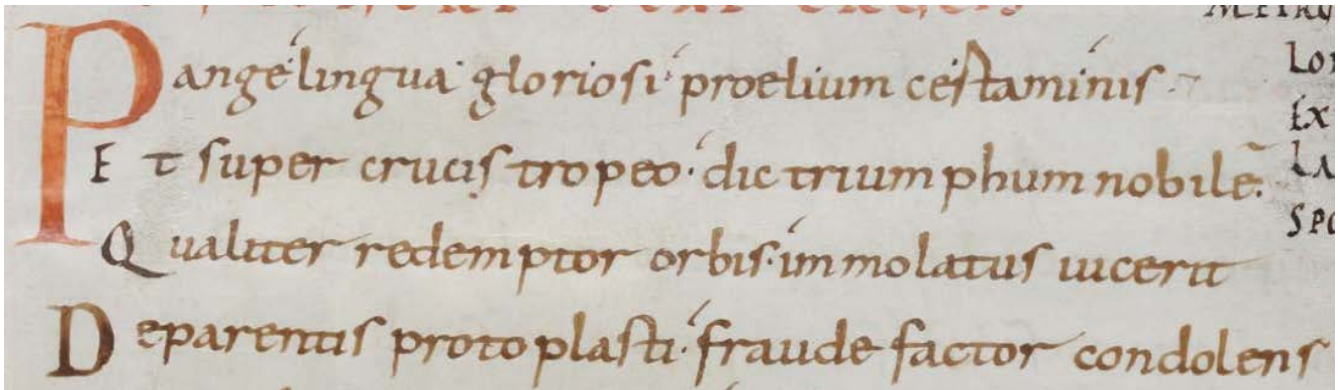 Pange lingua gloriosi proelium cestaminis
Et super crucis tropeo dic triumphum nobilē
Qualiter redemptor orbis immolatus uicerit
De parentis protoplasti fraude factor condolens